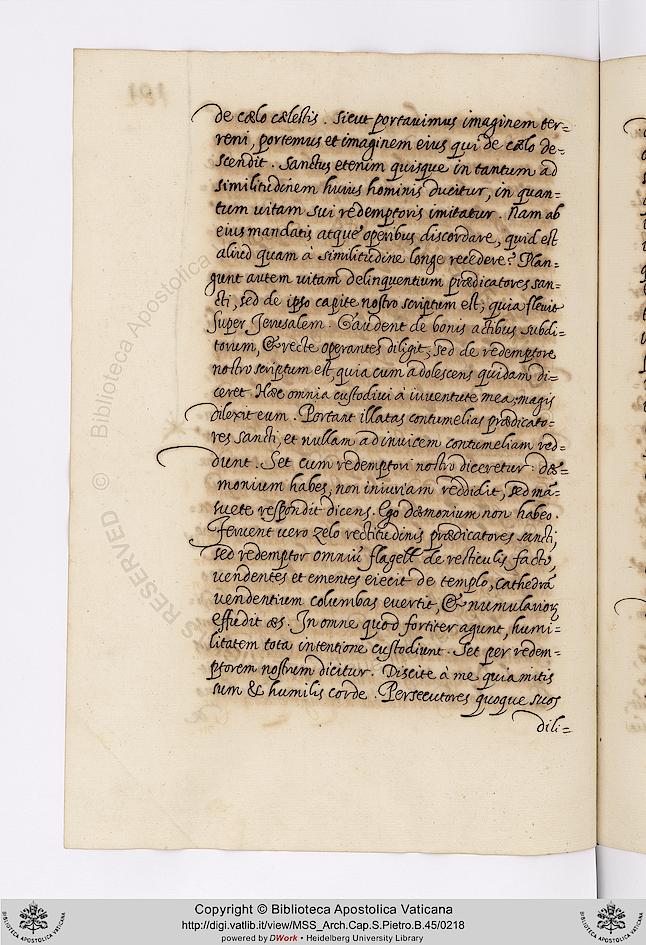 de cælo cælestis. Sicut portauimus imaginem ter=
reni, portemus et imaginem eius qui de cælo de=
scendit. Sanctus etenim quisque in tantum ad
similitudinem huius hominis ducitur, in quan=
tum uitam sui redemptoris imitatur. Nam ab
eius mandatis atque operibus discordare, quid est
aliud quam à similitudine longe recedere? Plan=
gunt autem uitam delinquentium prædicatores san=
cti, sed de ipso capite nostro scriptum est; quia fleuit
super Jerusalem. Gaudent de bonis actibus subdi=
torum, & recte operantes diligit; sed de redemptore
nostro scriptum est, quia cum adolescens quidam di=
ceret. Hæc omnia custodiui à iuuentute mea; magis
dilexit eum. Portant illatas contumelias prædicato=
res sancti, et nullam ad inuicem contumeliam red=
dunt. Set cum redemptori nostro diceretur: dæ=
monium habes, non iniuriam reddidit, sed mã=
suete respondit dicens. Ego dæmonium non habeo.
Feruent uero zelo rectitudinis prædicatores sancti,
sed redemptor omniũ flagell de resticulis facto,
uendentes et ementes eiecit de templo, cathedrã
uendentium columbas euertit, & numulariorꝝ
effudit æs. In omne quod fortiter agunt, humi=
litatem tota intentione custodiunt. Set per redem=
ptorem nostrum dicitur. Discite à me quia mitis
sum & humilis corde. Persecutores quoque suos
dili=
191
Biblioteca Apostolica
©
RESERVED
Copyright © Biblioteca Apostolica Vaticana
http://digi.vatlib.it/view/MSS_Arch.Cap.S.Pietro.B.45/0218
powered by DWork • Heidelberg University Library